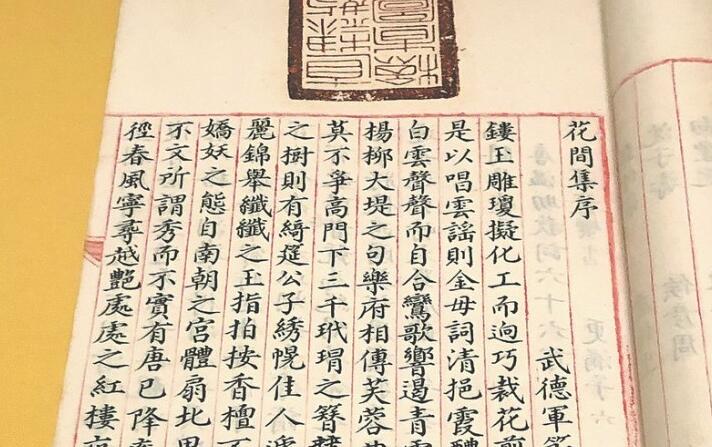 花間集序
武德軍
鏤玉雕瓊擬化工而逈巧裁花剪
是以唱雲謠則金母詞清挹霞醴
白雲聲聲而自合鸞歌響遏青雲
揚栁大堤之句樂府相傳芙蓉
莫不爭高門下三千玳瑁之簪
之樹則有綺筵公子綉幌佳人遞
麗錦舉纖纖之玉指拍按香檀不
嬌妖之態自南朝之宮體扇北里
不文所謂秀而不實有唐已降
徑春風寧尋越艷處處之紅樓夜